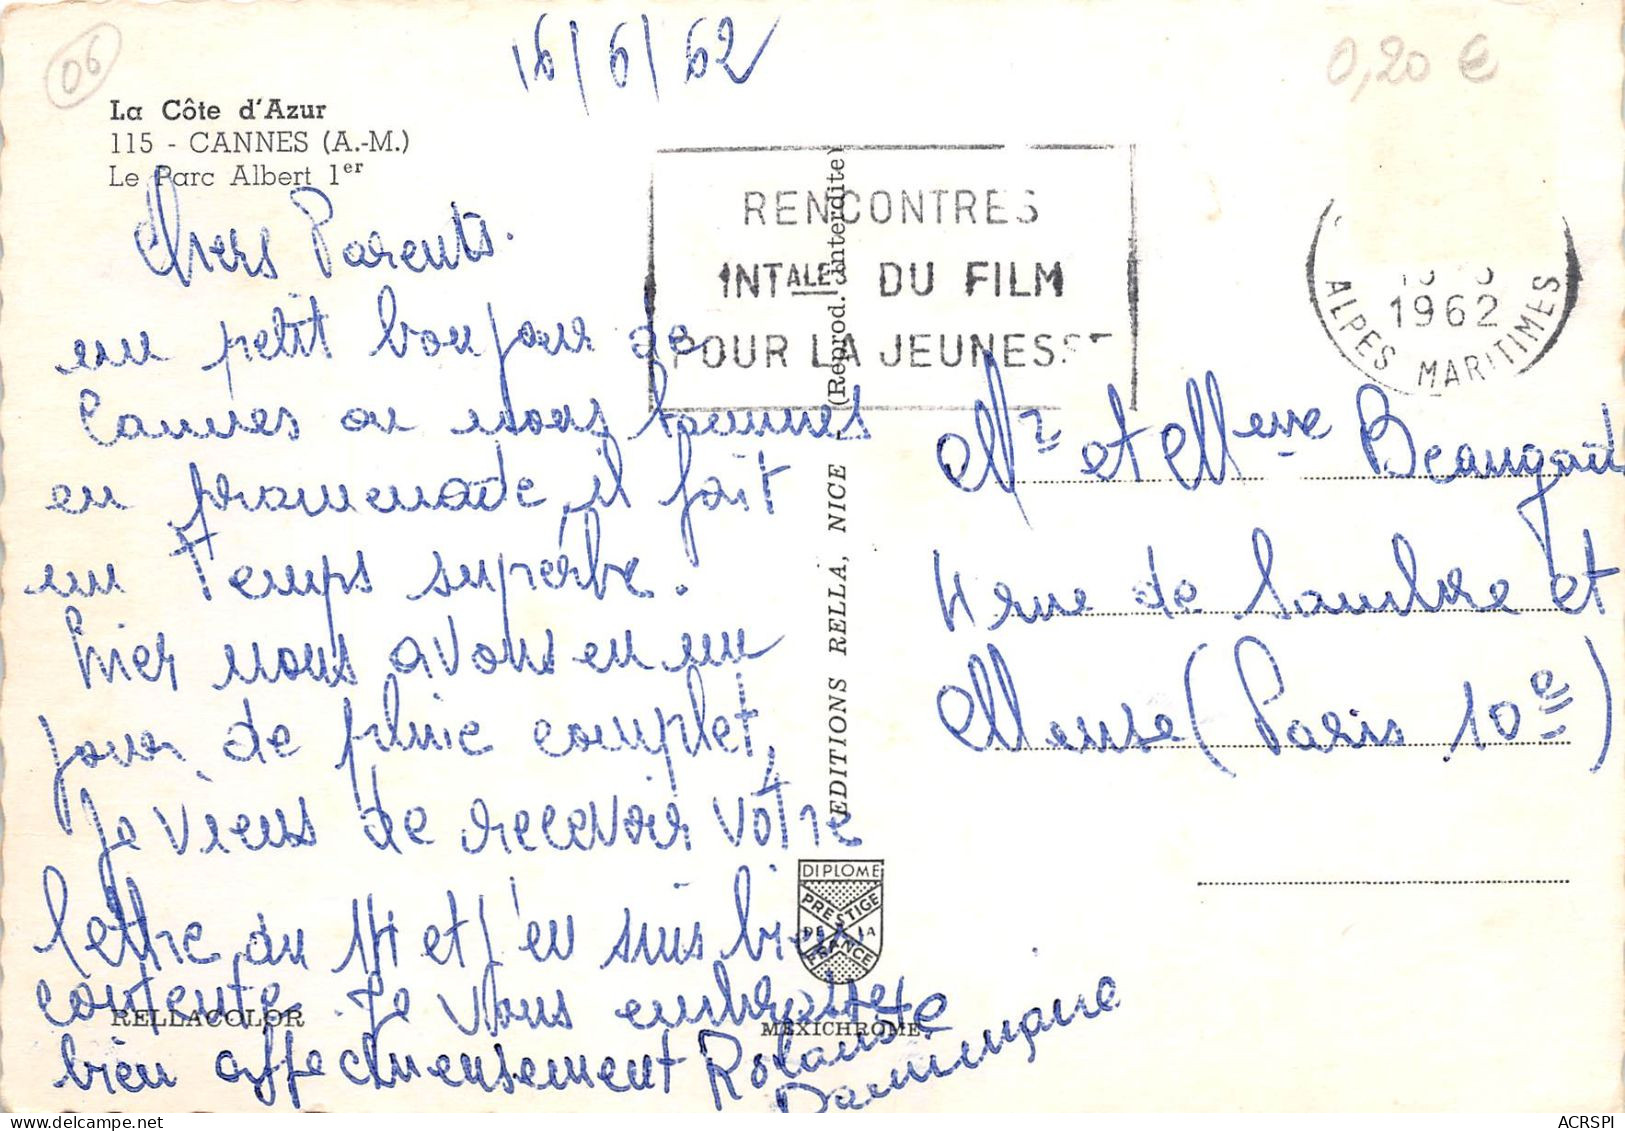 06
16/6/62
0,20 €
La Côte d'Azur
115 - CANNES (A.-M.)
Le Parc Albert 1er
RENCONTRES
INTALE DU FILM
POUR LA JEUNESSE
1962
ALPES MARITIMES
Chers Parents.
un petit bonjour de
Cannes ou nous sommes
en promenade, il fait
un Temps superbe.
hier nous avons eu un
jour de pluie complet,
Je viens de recevoir votre
lettre du 14 et j'en suis bien
contente. Je vous embrasse
bien affectueusement Rolande
Dominique
(Reprod. interdite)
EDITIONS RELLA, NICE
DIPLOME
PRESTIGE
DE LA
FRANCE
RELLACOLOR
MEXICHROME
Mr et Mme
4 rue de Sambre et
Meuse (Paris 10e)
ACRSPI